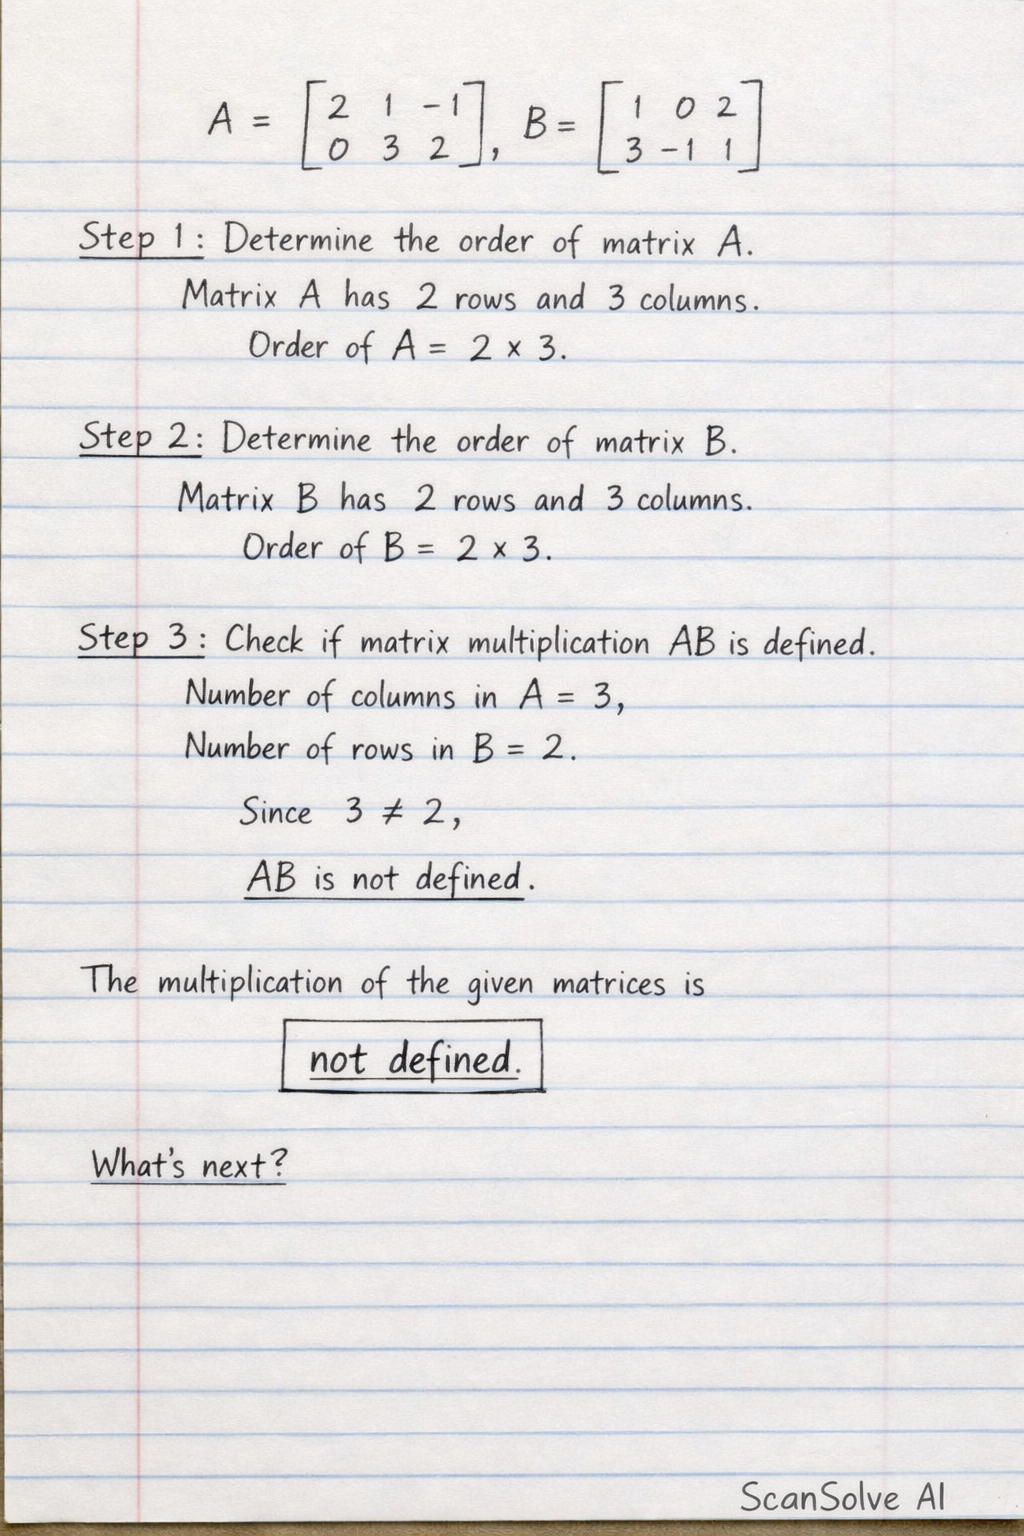 A = [2 1 -1], B = [1 0 2]
[0 3 2] [3 -1 1]
Step 1: Determine the order of matrix A.
Matrix A has 2 rows and 3 columns.
Order of A = 2 × 3.
Step 2: Determine the order of matrix B.
Matrix B has 2 rows and 3 columns.
Order of B = 2 × 3.
Step 3: Check if matrix multiplication AB is defined.
Number of columns in A = 3,
Number of rows in B = 2.
Since 3 ≠ 2,
AB is not defined.
The multiplication of the given matrices is
not defined.
What's next?
ScanSolve AI